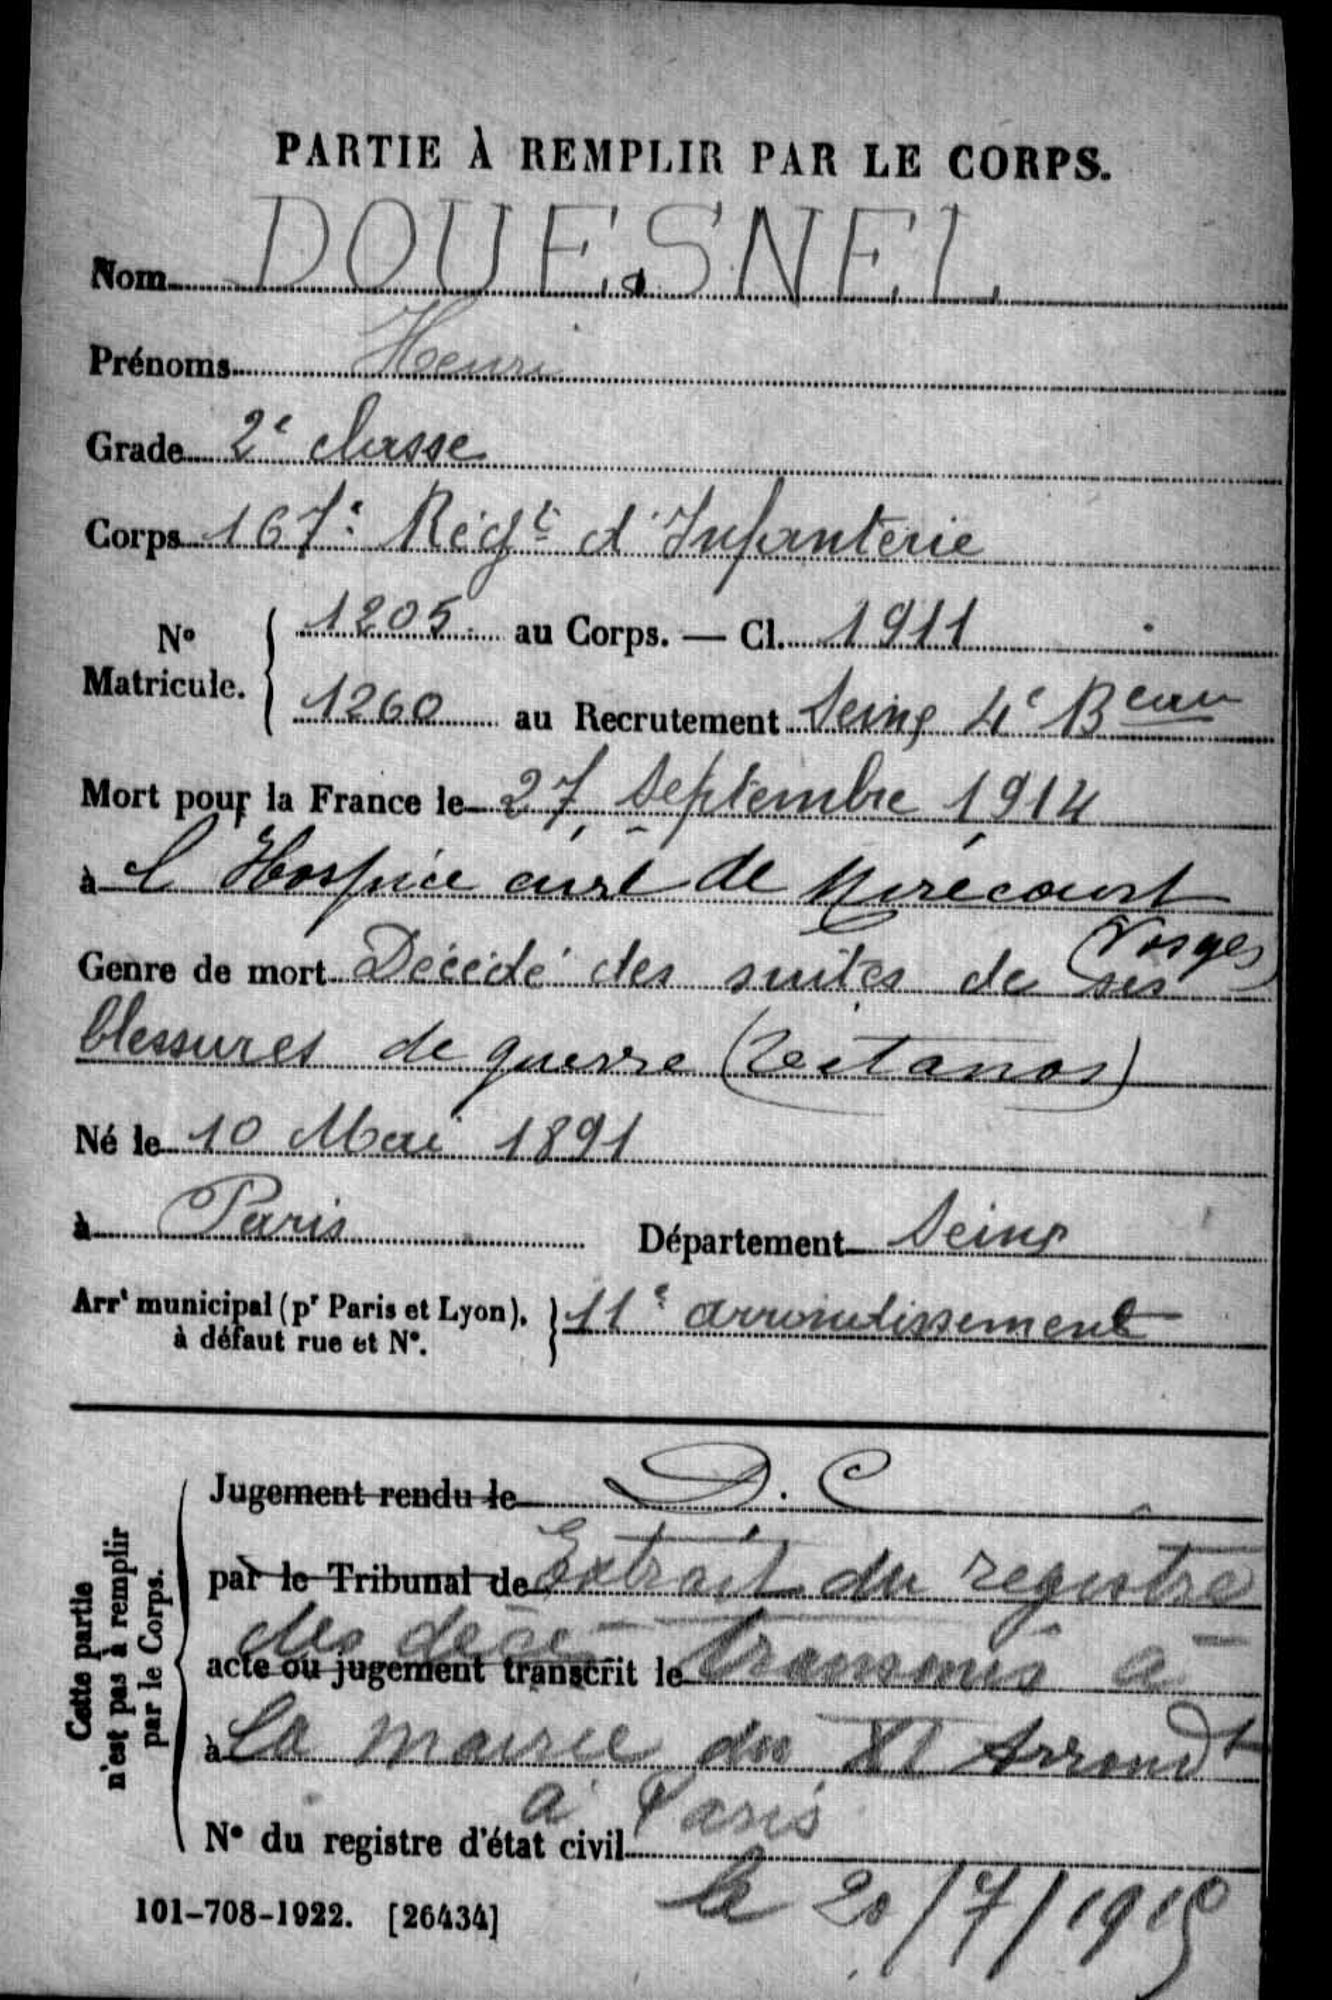 PARTIE À REMPLIR PAR LE CORPS.
Nom DOUESNEL
Prénoms Henri
Grade 2e classe
Corps 167e Régt d'Infanterie
No Matricule. { 1205 au Corps. — Cl. 1911
1260 au Recrutement Seine 4e Beau
Mort pour la France le 27 Septembre 1914
à l'Hospice civil de Mirecourt
(Vosges)
Genre de mort Décédé des suites de ses
blessures de guerre (Tétanos)
Né le 10 Mai 1891
à Paris Département Seine
Arrt municipal (pr Paris et Lyon), à défaut rue et No. } 11e arrondissement
Cette partie n'est pas à remplir par le Corps.
Jugement rendu le D. C
par le Tribunal de Extrait du registre
des décès
acte ou jugement transcrit le transmis à
à la mairie du XI Arrondt
à Paris
No du registre d'état civil
le 20/7/1915
101-708-1922. [26434]